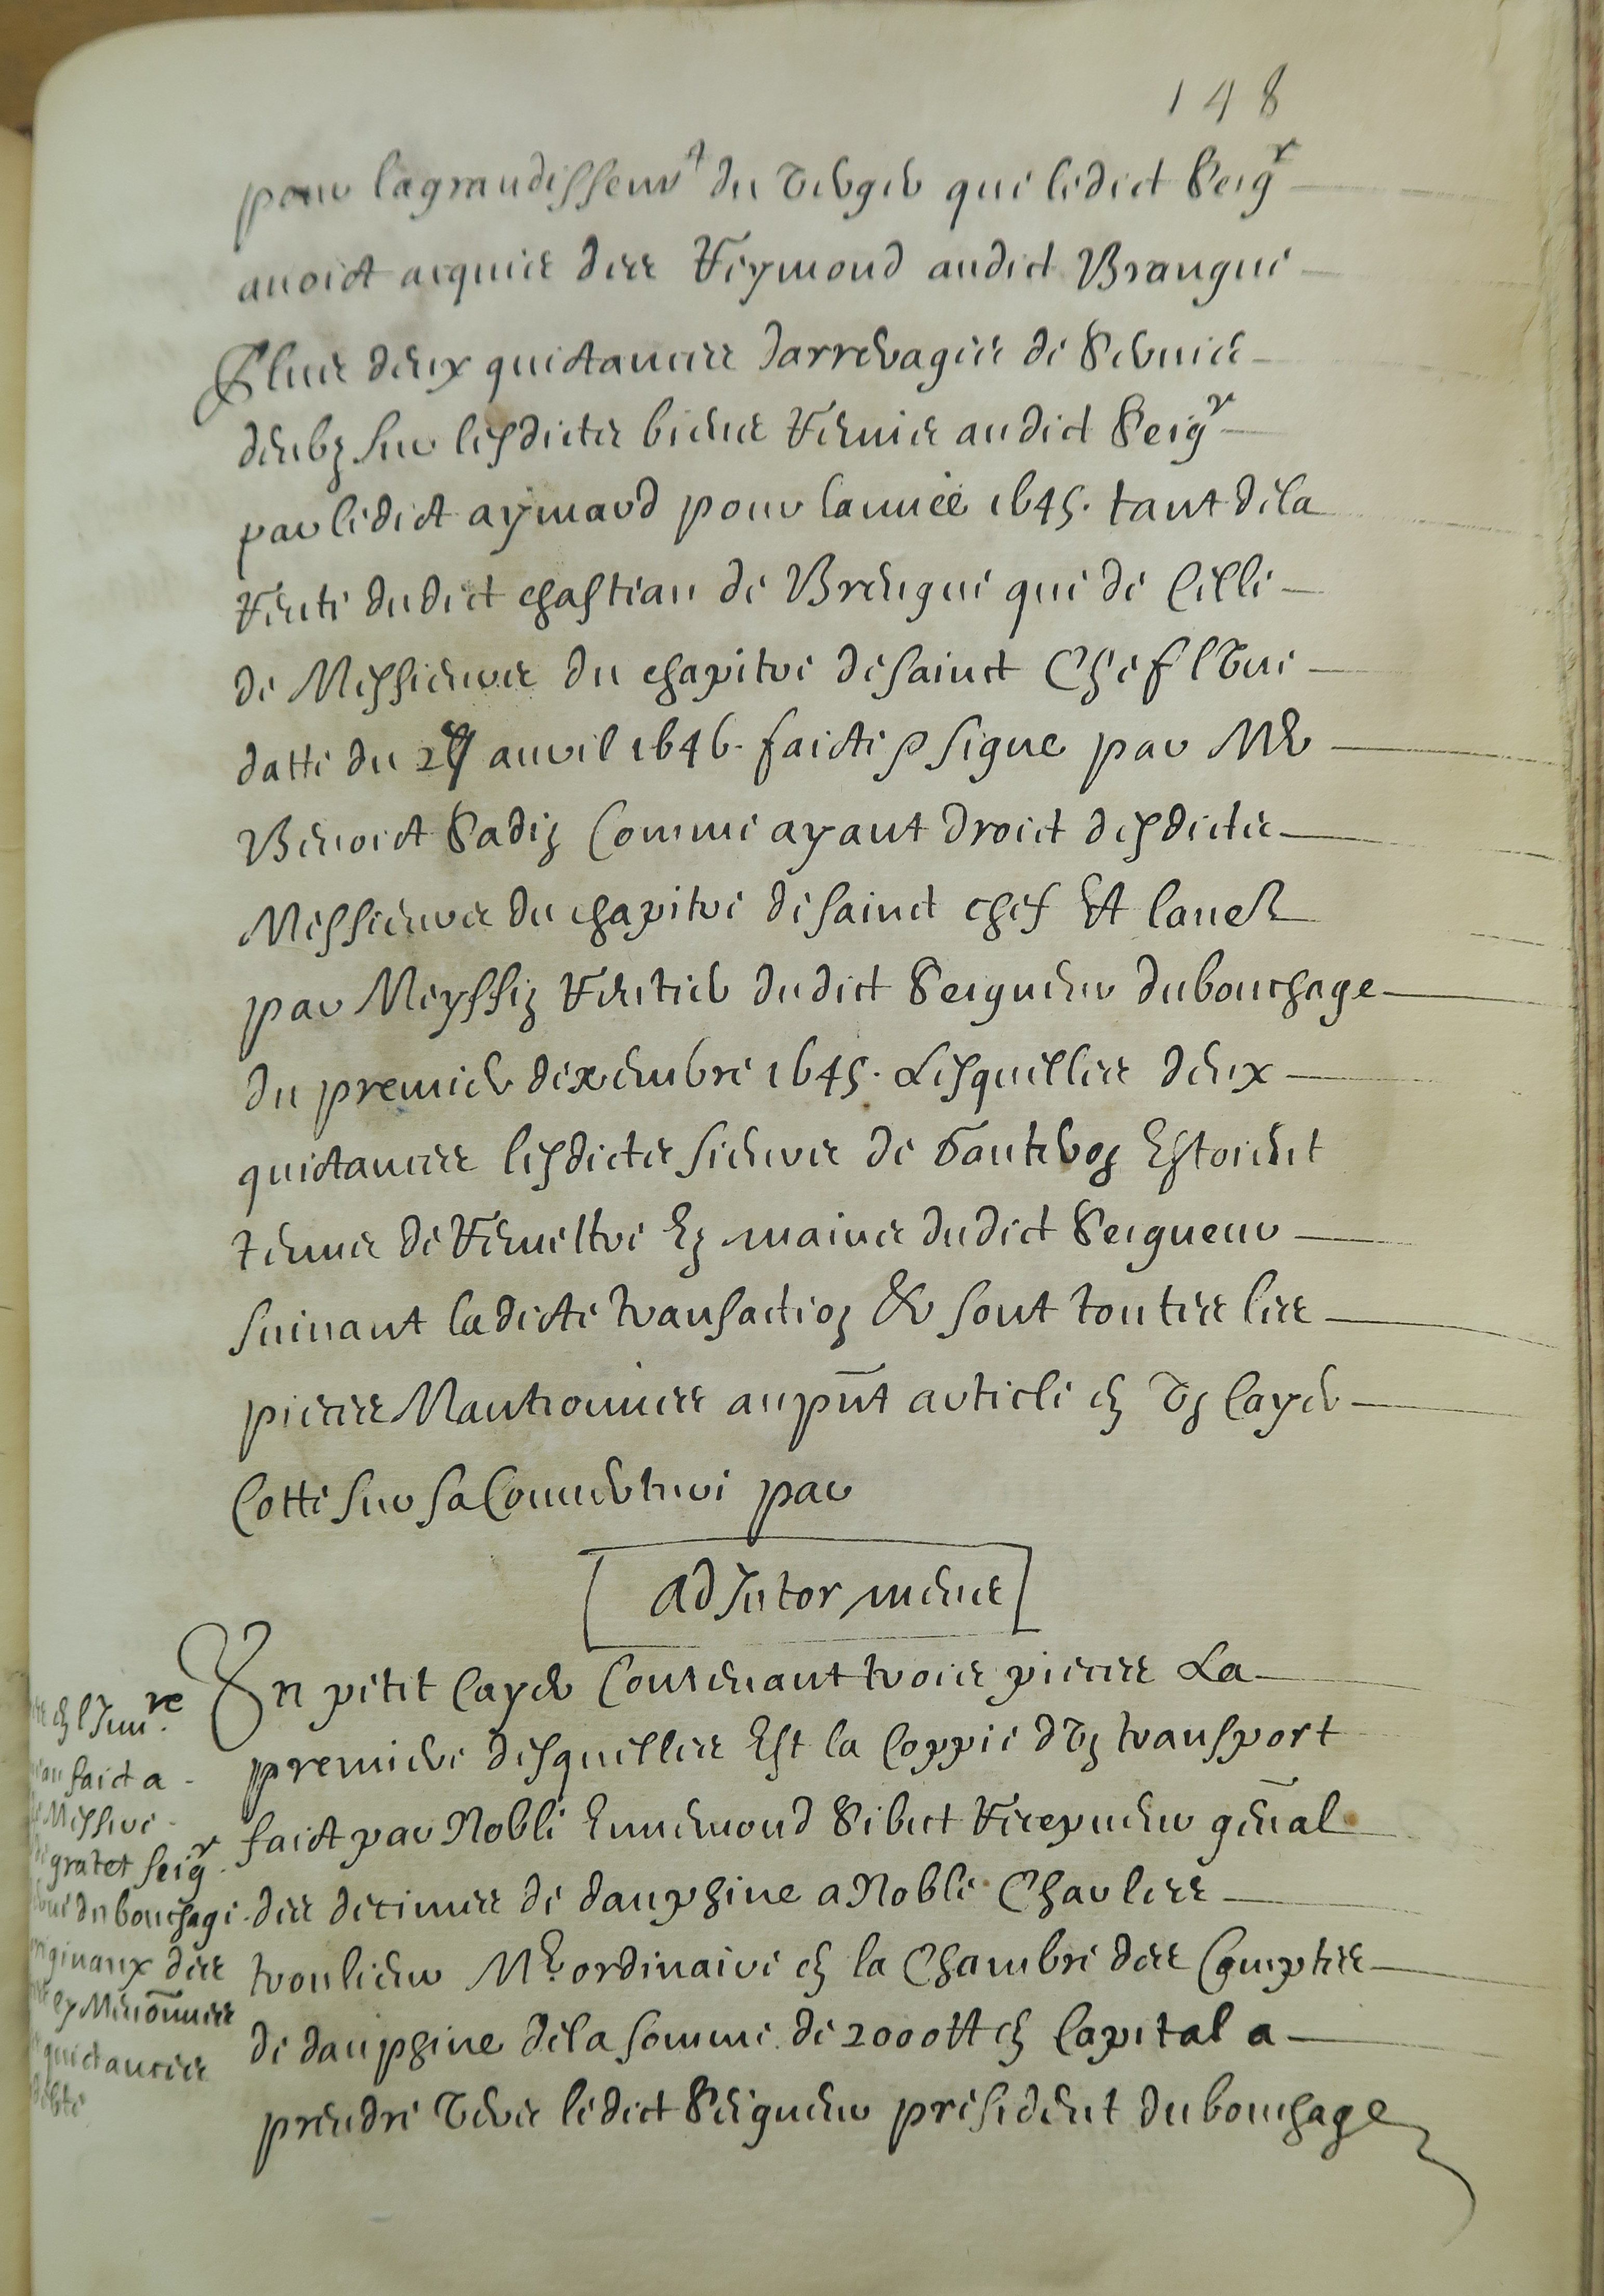 148
pour lagrandissemt du verger que ledict Seigr
auoict acquis des Reymond audict Brangue
Plus deux quictances darrerages de seruis
deubz sur lesdicts biens remis audict Seigr
par ledict aymard pour lannee 1645. tant de la
rente dudict chasteau de Brengue que de celle
de Messieurs du chapitre de sainct Chef lvne
datte du 27 auril 1646. faicte & signe par Mr
Benoict Sadin comme ayant droict desdicts
Messieurs du chapitre de sainct chef Et lautre
par Meyssin rentier dudict Seigneur dubouchage
du premier dexembre 1645. Lesquelles deux
quictances lesdicts sieurs de vantery estoient
tenus de remettre en mains dudict Seigneur
suiuant ladicte transaction & sont toutes les
pieces Mantionnees au pnt article en vn Cayer
Cotte sur sa Couuerture par
Ad Jutor mens
Vn petit Cayer Contenant trois pieces La
premiere desquelles Est la Coppie dvn transport
faict par Noble Ennemond Sibut Recepueur gnal
des decimes de dauphine a Noble Charles
trouilleur Me. ordinaire en la Chambre des Comptes
de dauphine de la somme de 2000 tt en Capital a
prendre vers ledict Seigneur president dubouchage
en lJnure.
faict a
Messire
gratet seigr.
du bouchage.
originaux des
Mentionnees
quictances